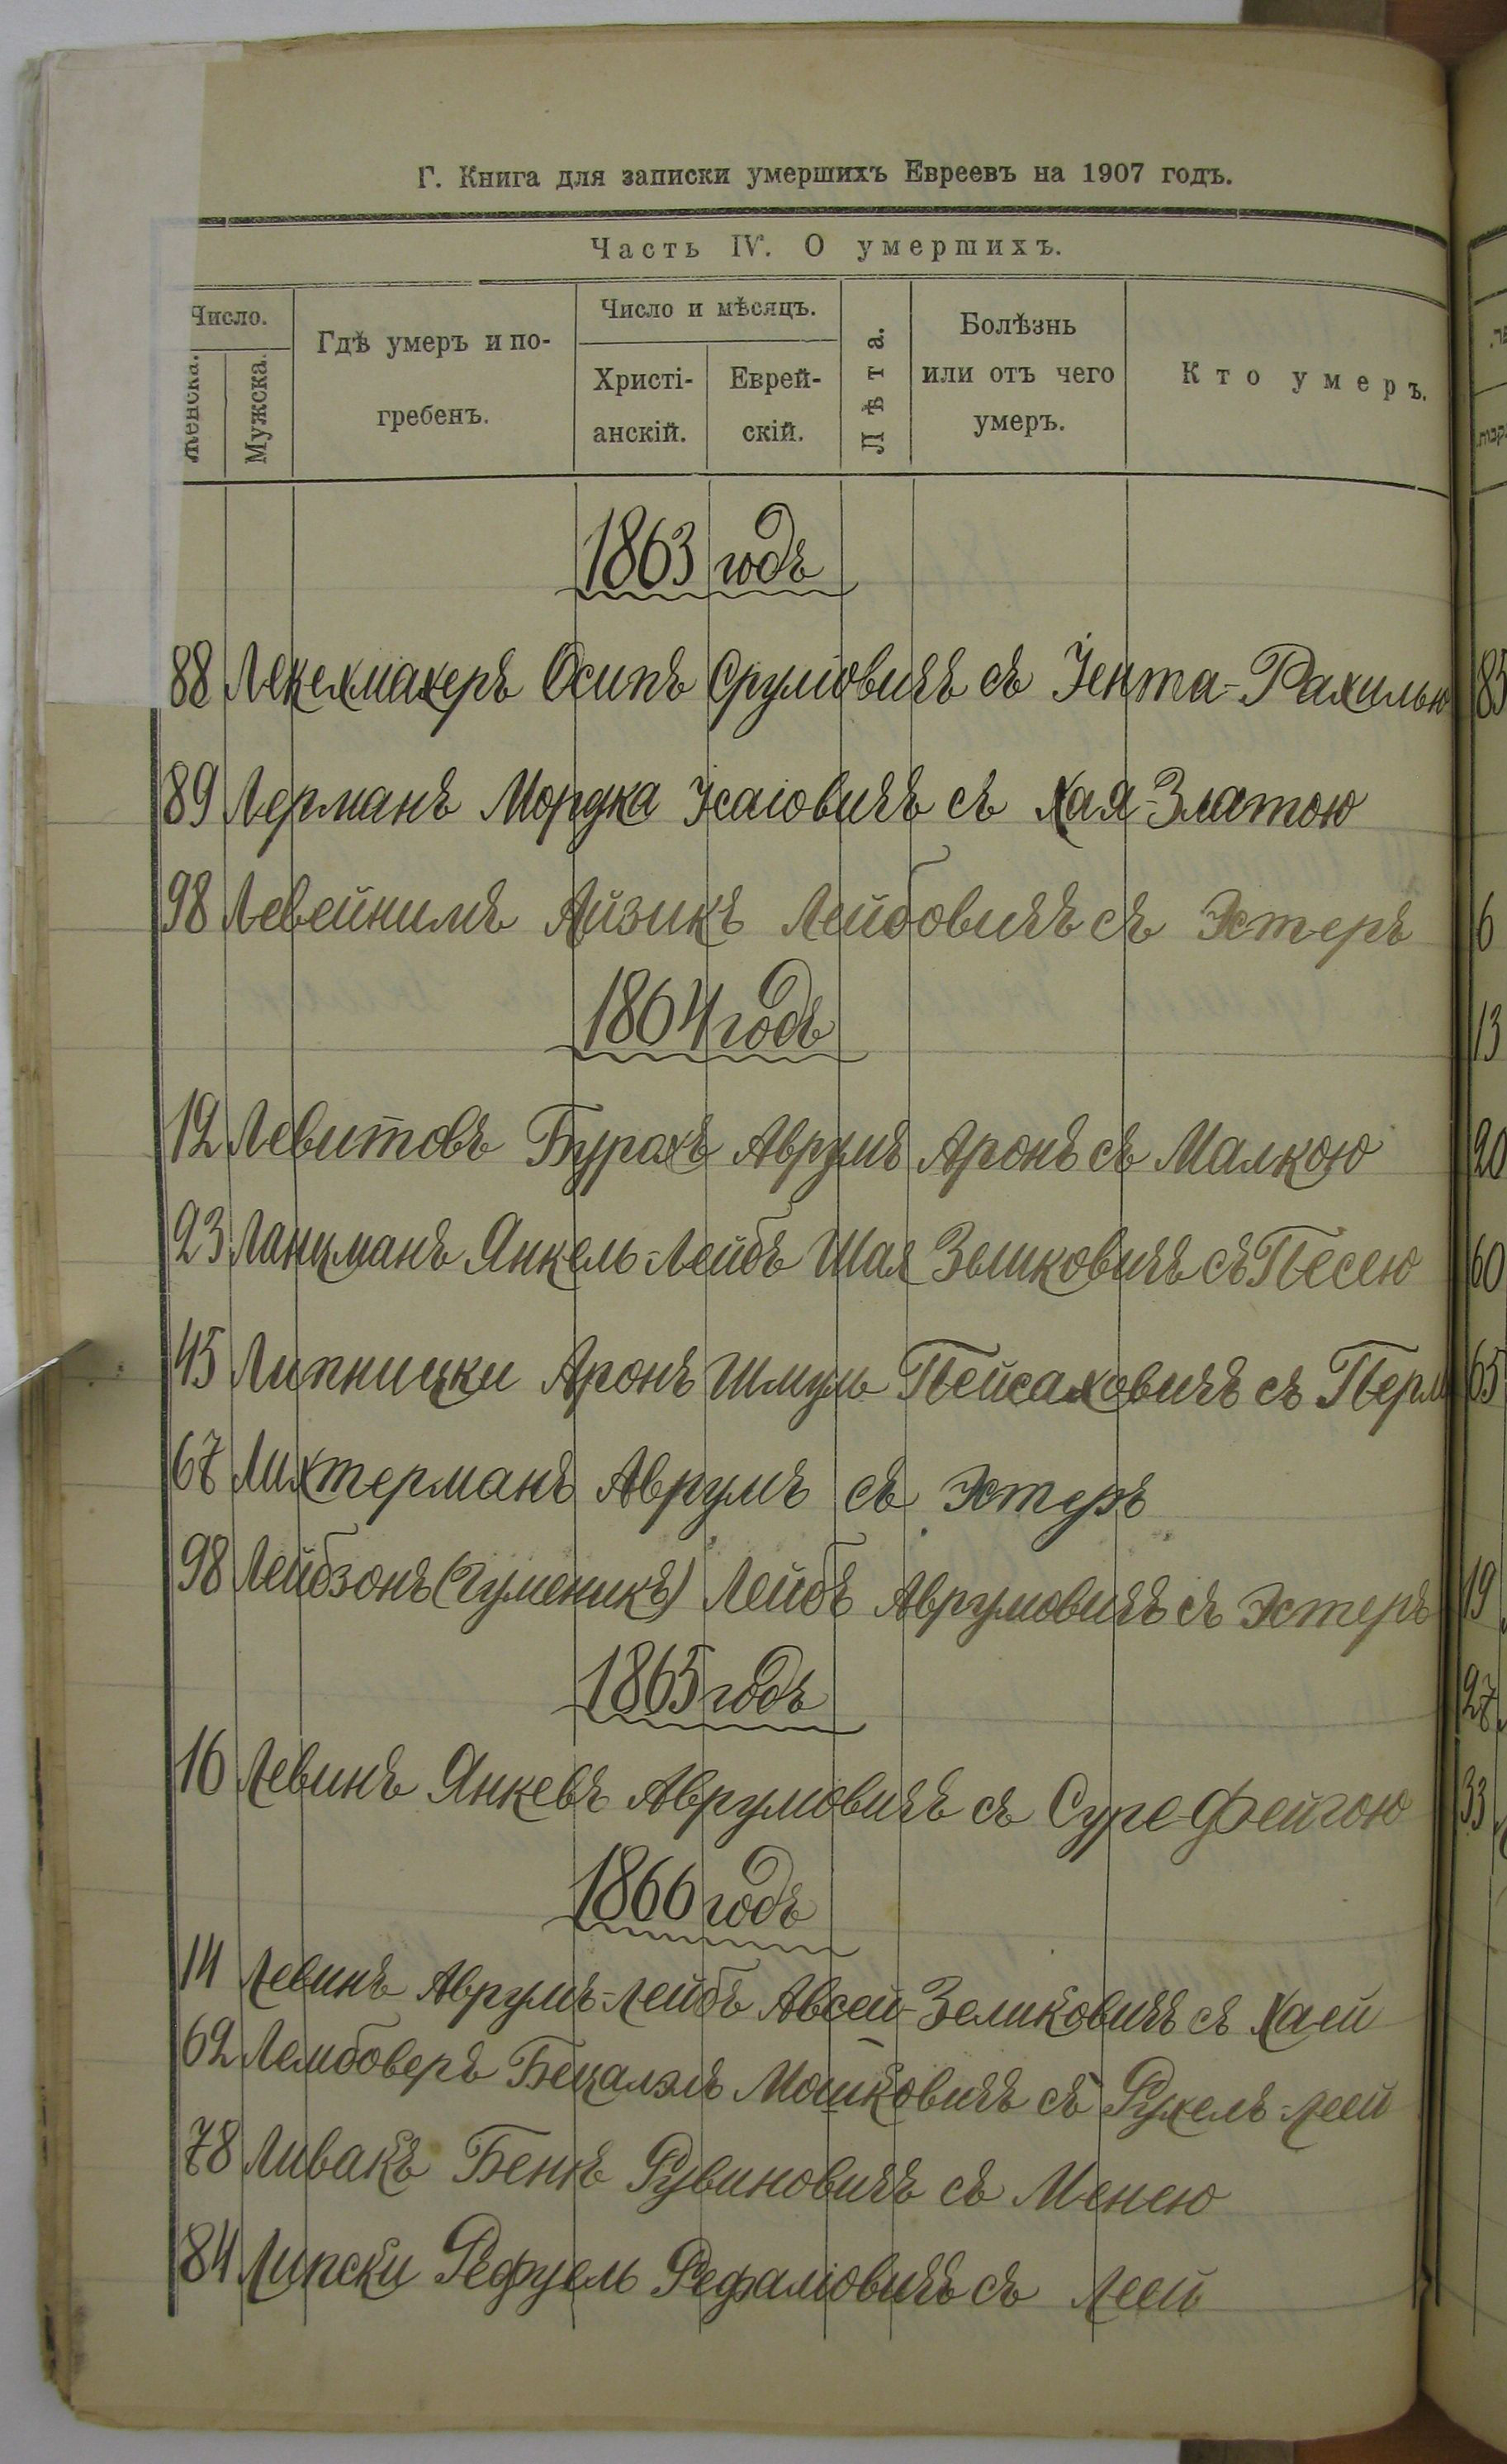 Г. Книга для записки умершихъ Евреевъ на 1907 годъ.
Часть IV. О умершихъ.
Число.
Женска.
Мужска.
Гдѣ умеръ и по-
гребенъ.
Число и мѣсяцъ.
Христі-
анскій.
Еврей-
скій.
Лѣта.
Болѣзнь
или отъ чего
умеръ.
Кто умеръ.
1863 годъ
88 Лекехмахеръ Осипъ Срумовичъ съ Іента-Рахилью
89 Лерманъ Мордка Ісаіовичъ съ Хая-Златою
98 Левейнимъ Айзикъ Лейбовичъ съ Эстеръ
1864 годъ
12 Левитовъ Бурахъ Аврумъ Аронъ съ Малкою
23 Ланцманъ Янкель-Лейбъ Шая Зельковичъ съ Песею
45 Липницки Аронъ Шмуль Пейсаховичъ съ Перл
67 Лихтерманъ Аврумъ съ Эстеръ
98 Лейбзонъ (Гуменикъ) Лейбъ Аврумовичъ съ Эстеръ
1865 годъ
16 Левинъ Янкевъ Аврумовичъ съ Суре-Фейгою
1866 годъ
14 Левинъ Аврумъ-Лейбъ Авсей-Зеликовичъ съ Хаей
62 Лемберъ Бецалэлъ Мошковичъ съ Рухель-Леей
78 Ливакъ Бенъ Рувиновичъ съ Менею
84 Липски Рефуель Рефаловичъ съ Леей
85
6
13
20
60
65
19
27
33